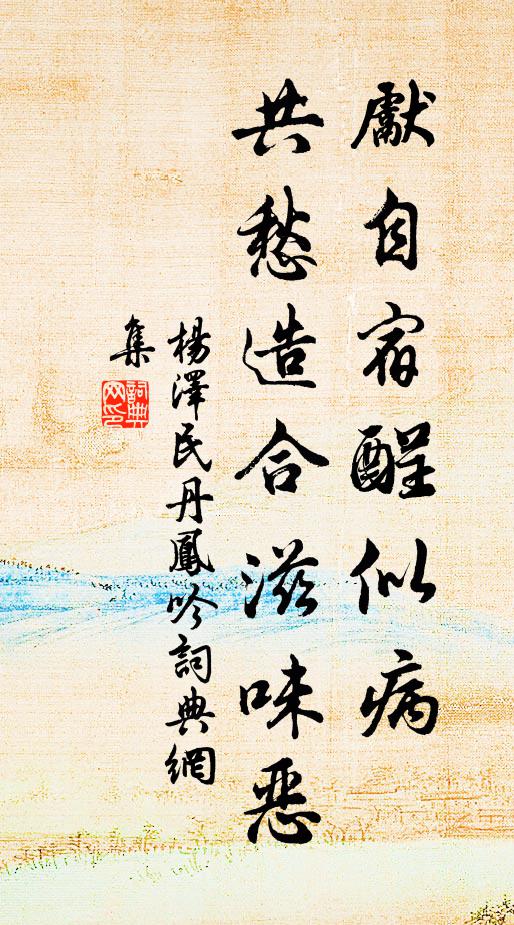 獻自宿酲似病
共愁造合滋味恶
楊澤民丹鳳吟詞典網
集
詞典網印